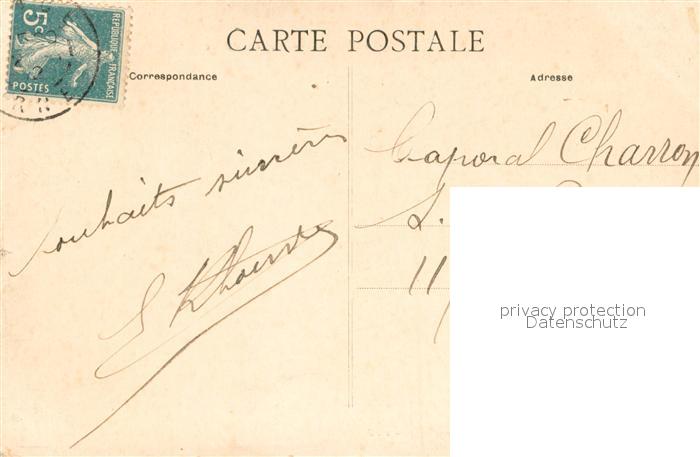 5c
REPUBLIQUE FRANÇAISE
POSTES
CARTE POSTALE
Correspondance
Adresse
Souhaits sincères
Caporal Charron
11
privacy protection
Datenschutz